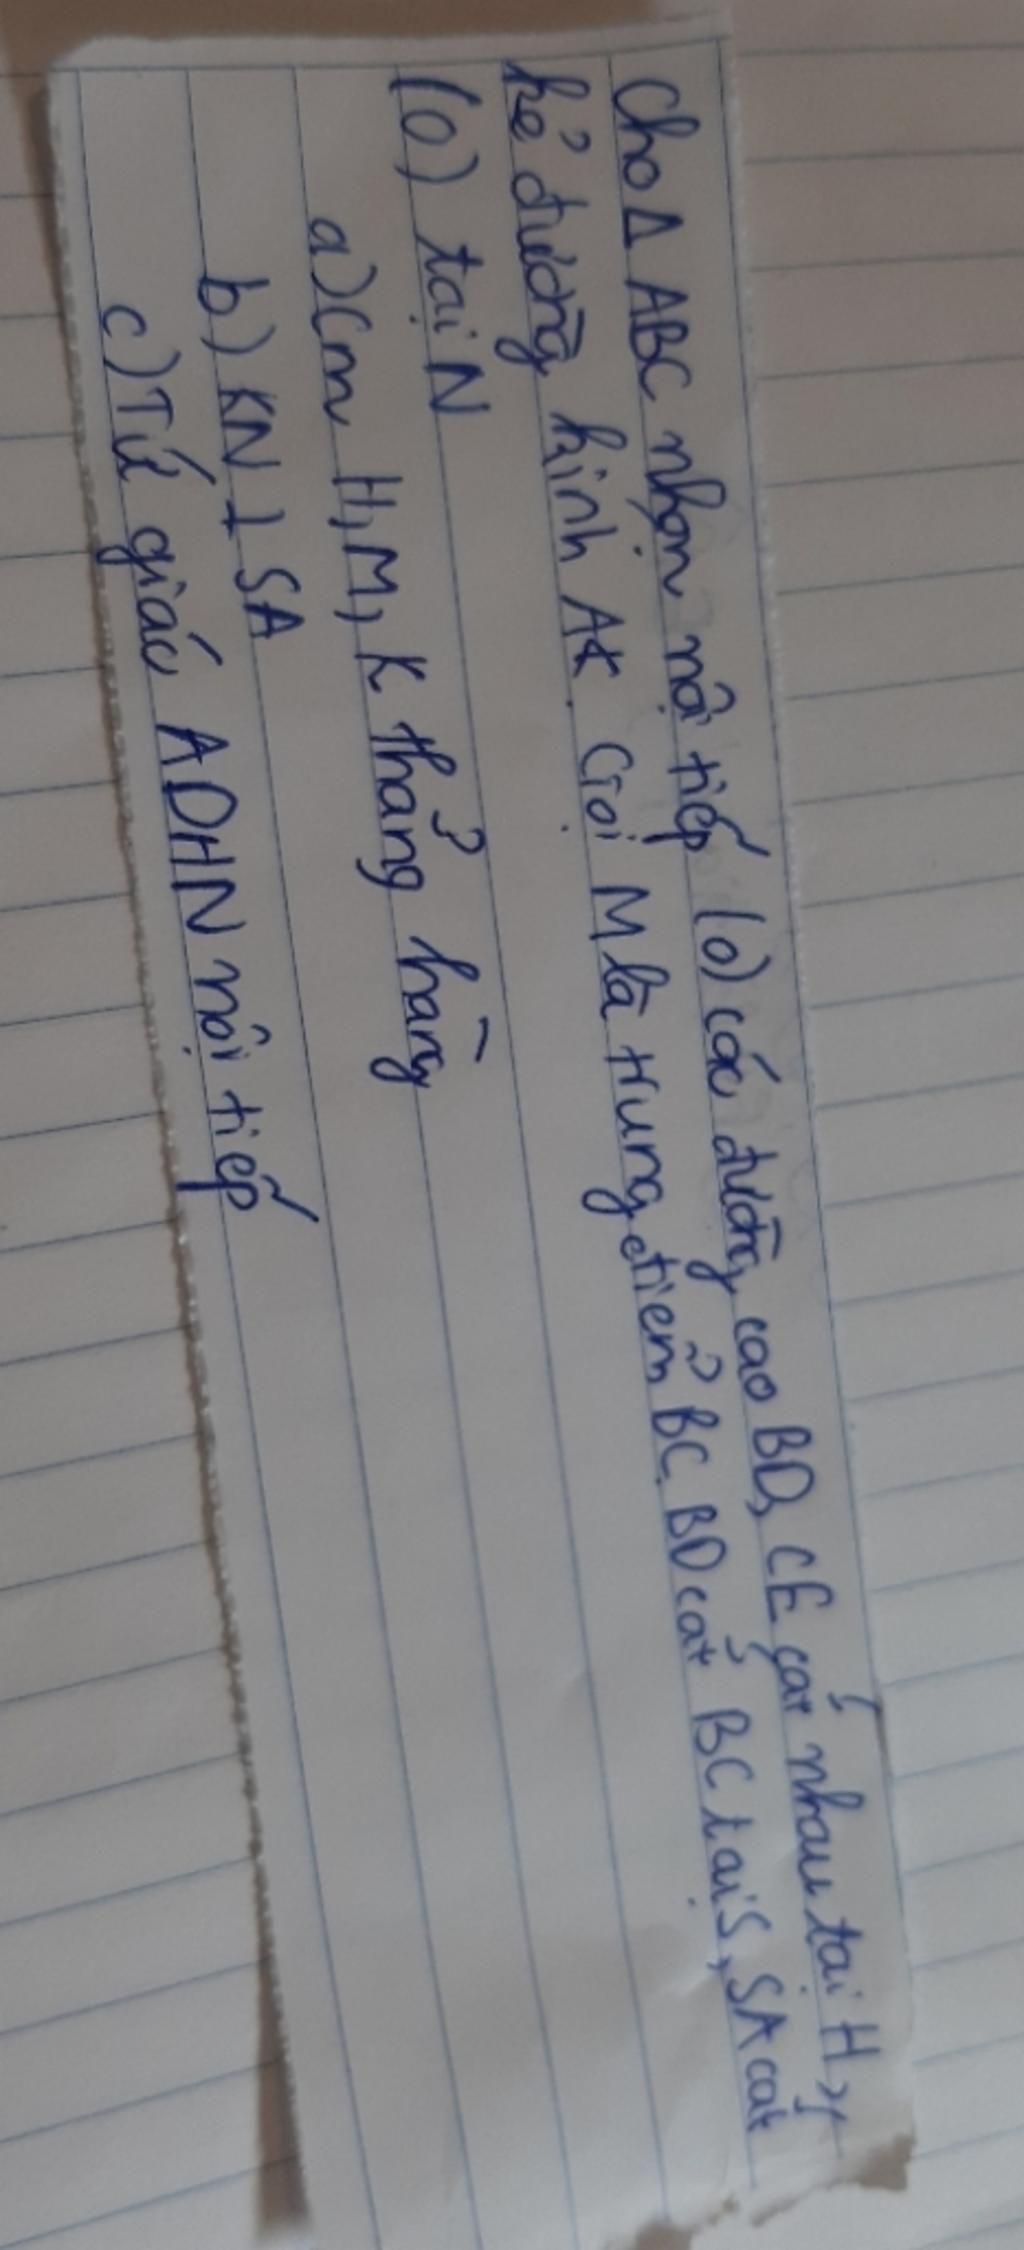 Cho Δ ABC nhọn nội tiếp (O) các đường cao BD, CE cắt nhau tại H,
kẻ đường kính AK. Gọi M là trung điểm BC. BD cắt BC tại S, SA cắt
(O) tại N
a) Cm H, M, K thẳng hàng
b) KN ⊥ SA
c) Tứ giác ADHN nội tiếp